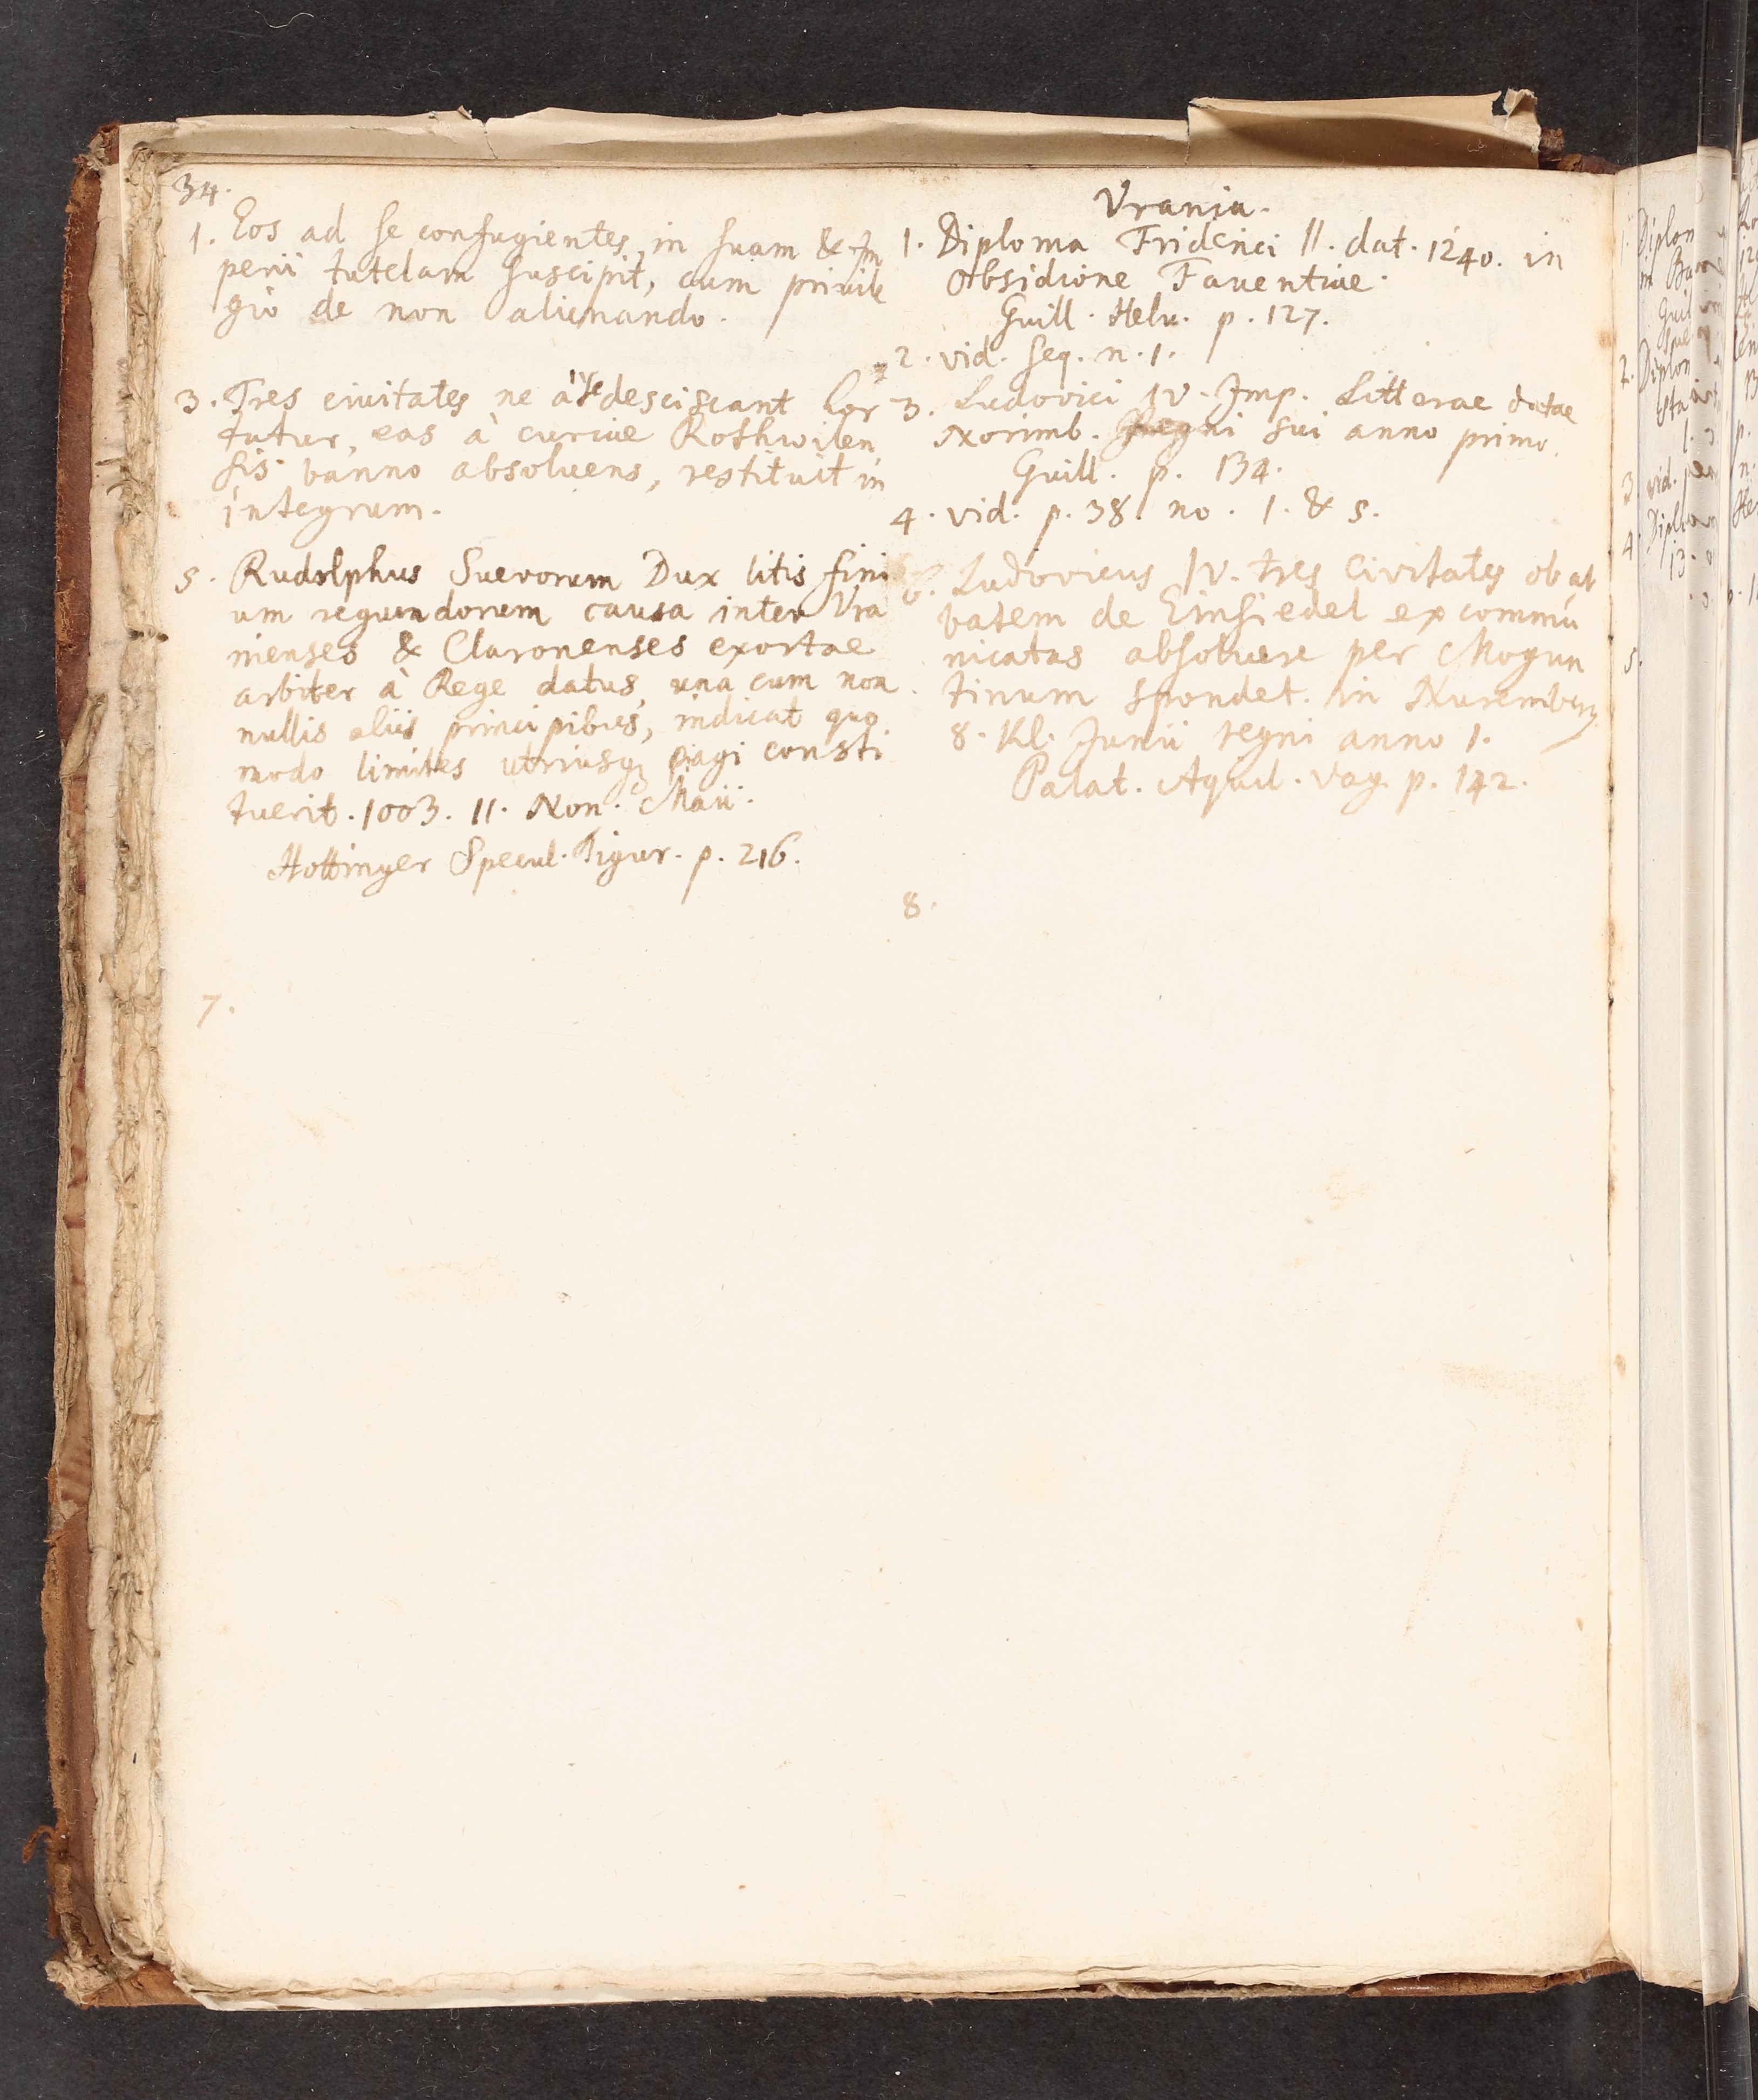 34.
1. Eos ad se confugientes, in suam & Im
perii tutelam suscipit, cum privile
gio de non alienando.
3. Tres civitates ne à se desciscant hor
tatur, eas à curiae Rothwilen
sis banno absolvens, restituit in
integrum.
5. Rudolphus Suevorum Dux litis fini
um regundorum causa inter Vra
nienses & Claronenses exortae
arbiter à Rege datus, una cum non
nullis aliis principibus, indicat quo
modo limites utriusq; pagi consti
tuerit. 1003. 11. Non. Maii.
Hottinger Specul. Tigur. p. 216.
7.
Vrania.
1. Diploma Friderici II. dat. 1240. in
Obsidione Faventiae.
Guill. Helv. p. 127.
2. vid. seq. n. 1.
3. Ludovici IV. Imp. Litterae datae
Norimb. Regni sui anno primo.
Guill. p. 134.
4. vid. p. 38. no. 1. & 5.
6. Ludovicus IV. tres Civitates ob ab
batem de Einsiedel excommu
nicatas absolvere per Mogun
tinum spondet. in Nuremberg
8. Kl. Junii regni anno 1.
Palat. Aquil. Vag. p. 142.
8.